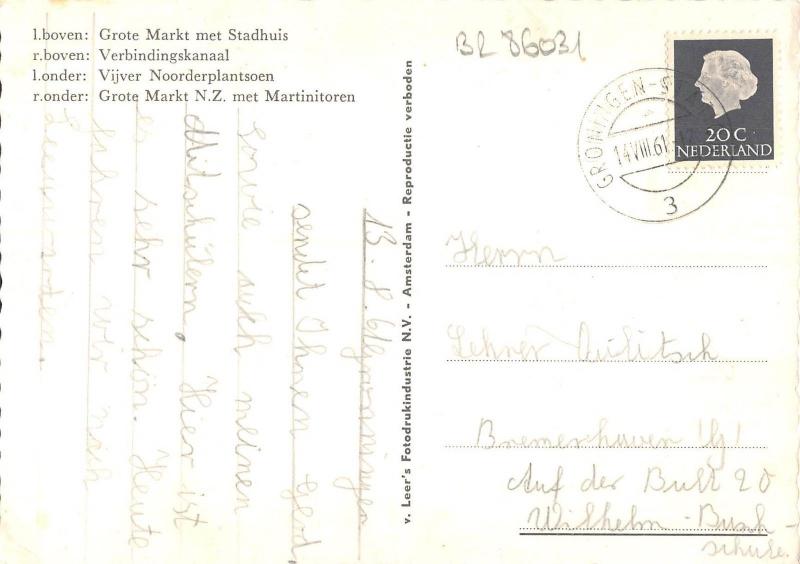 l.boven: Grote Markt met Stadhuis
r.boven: Verbindingskanaal
l.onder: Vijver Noorderplantsoen
r.onder: Grote Markt N.Z. met Martinitoren
BR 86031
20 C
NEDERLAND
GRONINGEN-S
14 VIII.61
3
v. Leer's Fotodrukindustrie N.V. - Amsterdam - Reproductie verboden
13.8.61 Groningen
sendet Ihnen
sowie auch meinen
Mitschülern. Hier ist
es sehr schön. Heute
fahren wir nach
Leeuwarden.
Herrn
Lehrer
Bremerhaven
Auf der Bult 20
Wilhelm-Busch-
schule.